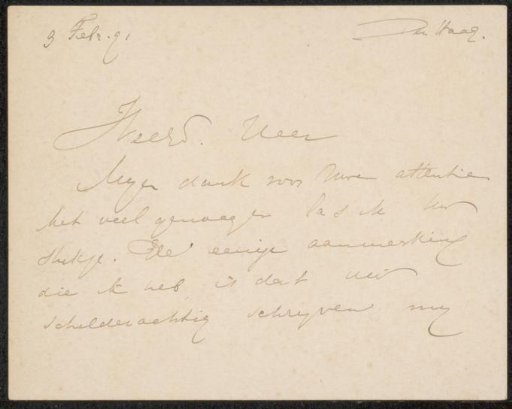 3 Febr. 91 Den Haag.
Weerd. Heer
Mijn dank voor Uwe attentie
Met veel genoegen las ik Uw
stukje. De eenige aanmerking
die ik heb, is dat uw
schilderachtig schrijven my